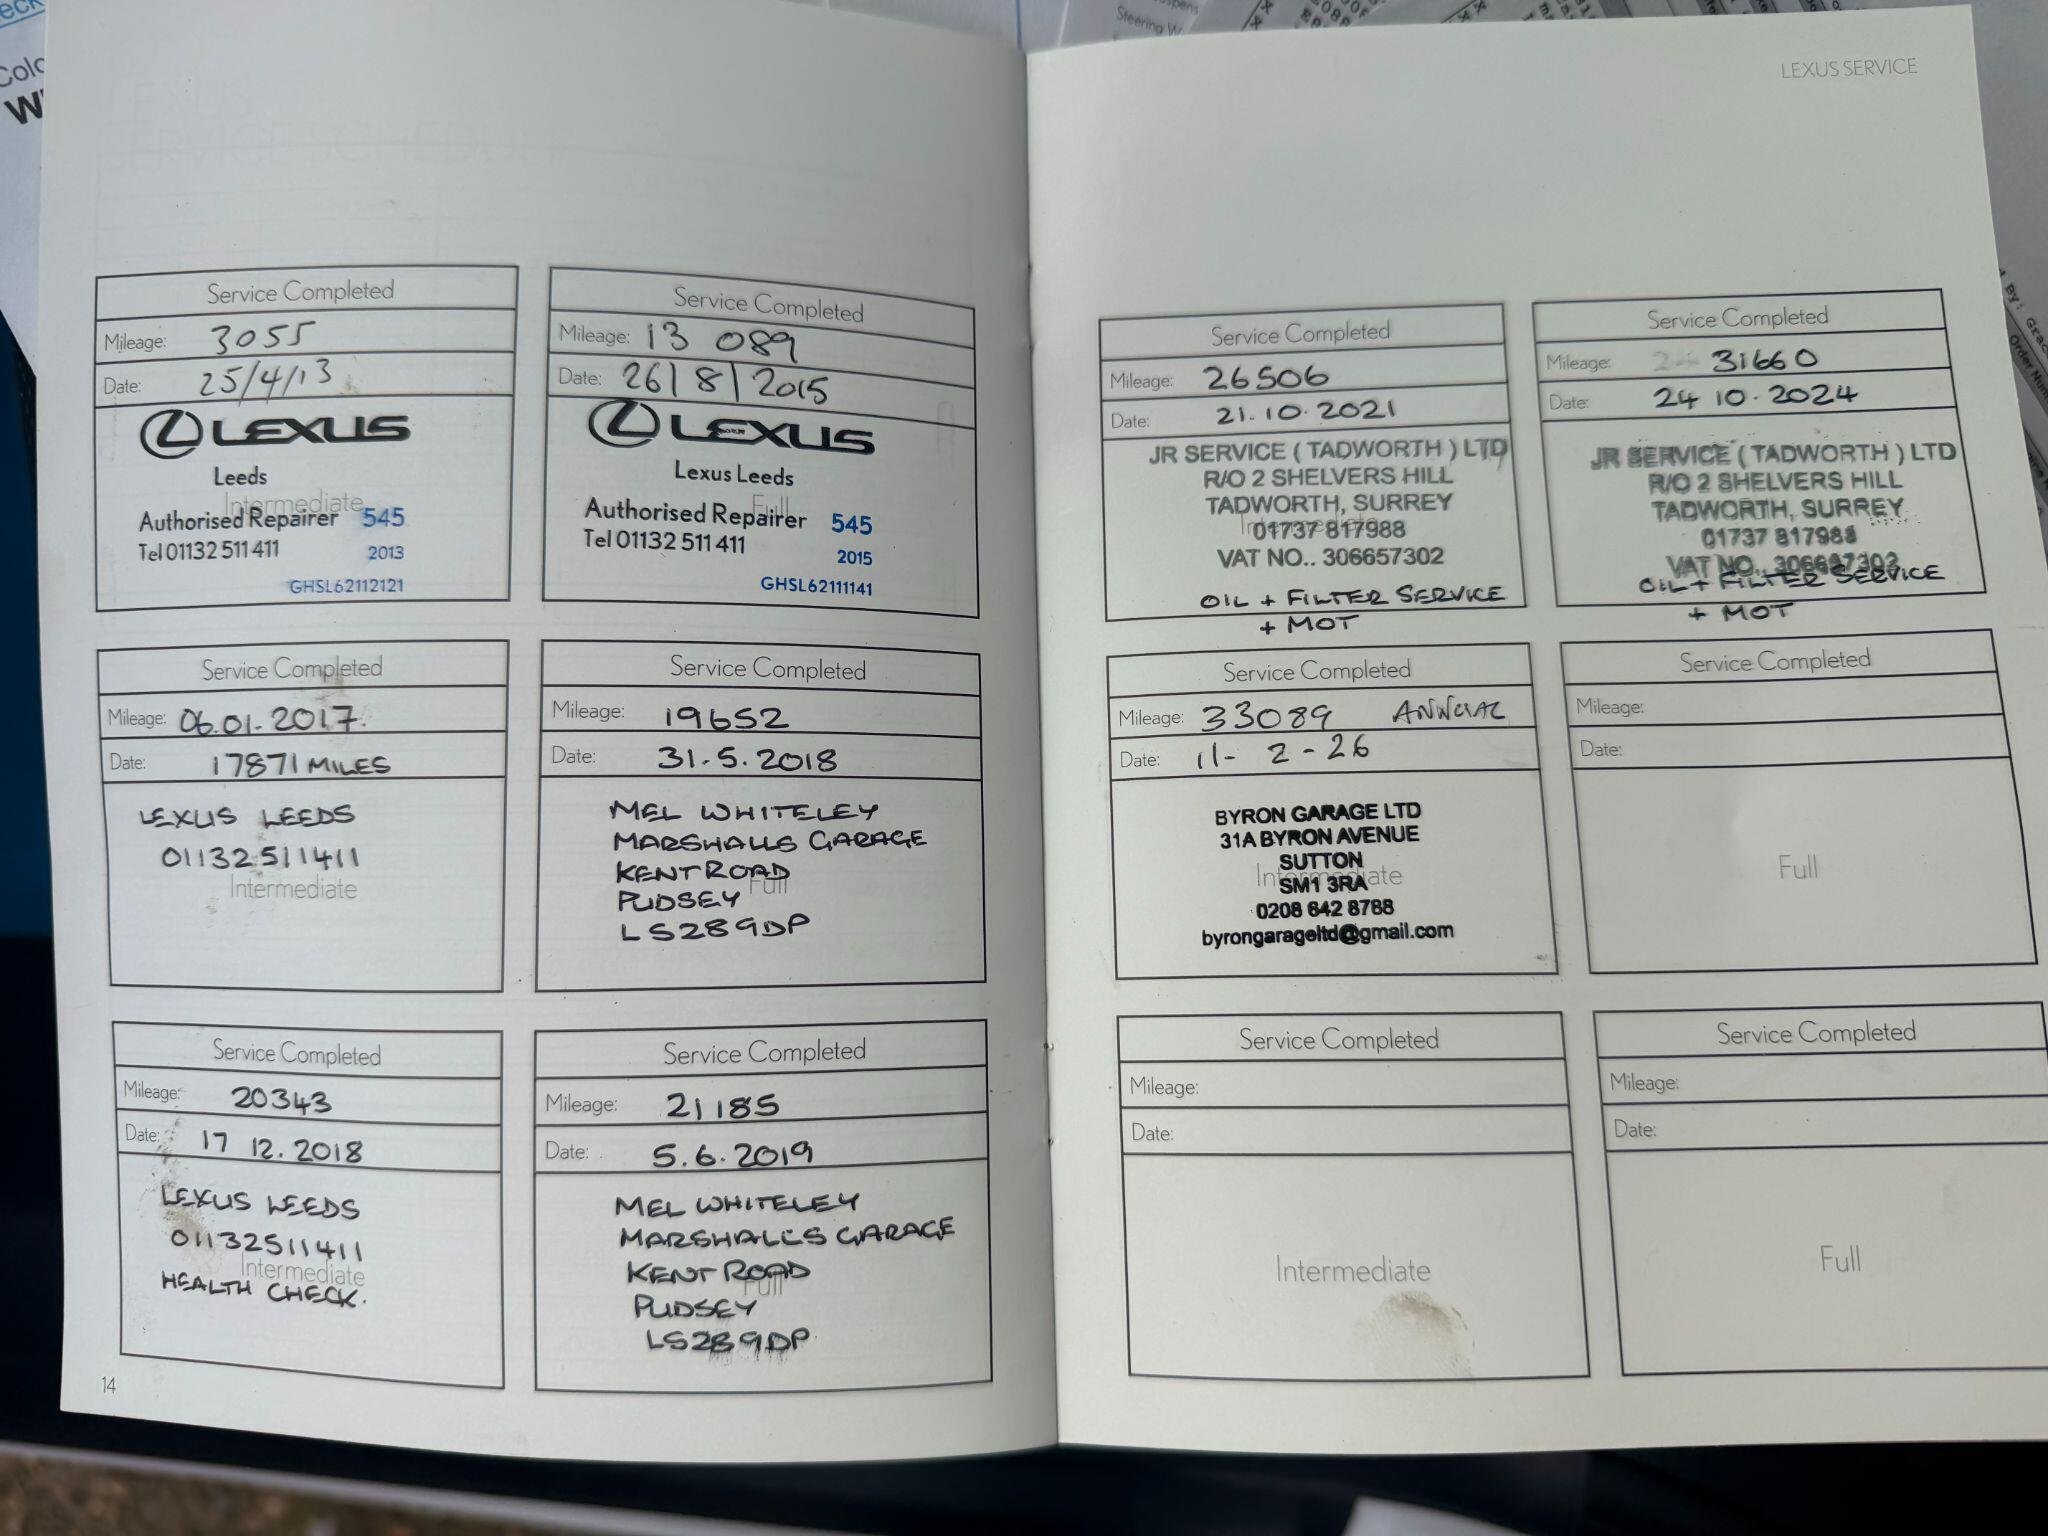 LEXUS SERVICE
Service Completed
Mileage: 3055
Date: 25/4/13
LEXUS
Leeds
Intermediate
Authorised Repairer 545
Tel 01132 511 411 2013
GHSL62112121
Service Completed
Mileage: 13 089
Date: 26/8/2015
LEXUS
Lexus Leeds
Full
Authorised Repairer 545
Tel 01132 511 411 2015
GHSL62111141
Service Completed
Mileage: 06.01.2017.
Date: 17871 MILES
LEXUS LEEDS
01132511411
Intermediate
Service Completed
Mileage: 19652
Date: 31.5.2018
MEL WHITELEY
MARSHALLS GARAGE
KENT ROAD
Full
PUDSEY
LS289DP
Service Completed
Mileage: 20343
Date: 17 12.2018
LEXUS LEEDS
01132511411
Intermediate
HEALTH CHECK.
Service Completed
Mileage: 21185
Date: 5.6.2019
MEL WHITELEY
MARSHALLS GARAGE
KENT ROAD
Full
PUDSEY
LS289DP
14
Service Completed
Mileage: 26506
Date: 21.10.2021
JR SERVICE ( TADWORTH ) LTD
R/O 2 SHELVERS HILL
TADWORTH, SURREY
Intermediate
01737 817988
VAT NO.. 306657302
OIL + FILTER SERVICE
+ MOT
Service Completed
Mileage: 31660
Date: 24 10.2024
JR SERVICE ( TADWORTH ) LTD
R/O 2 SHELVERS HILL
TADWORTH, SURREY
01737 817988
VAT NO.. 306657302
OIL + FILTER SERVICE
+ MOT
Service Completed
Mileage: 33089 ANNUAL
Date: 11-2-26
BYRON GARAGE LTD
31A BYRON AVENUE
SUTTON
Intermediate
SM1 3RA
0208 642 8788
byrongarageltd@gmail.com
Service Completed
Mileage:
Date:
Full
Service Completed
Mileage:
Date:
Intermediate
Service Completed
Mileage:
Date:
Full